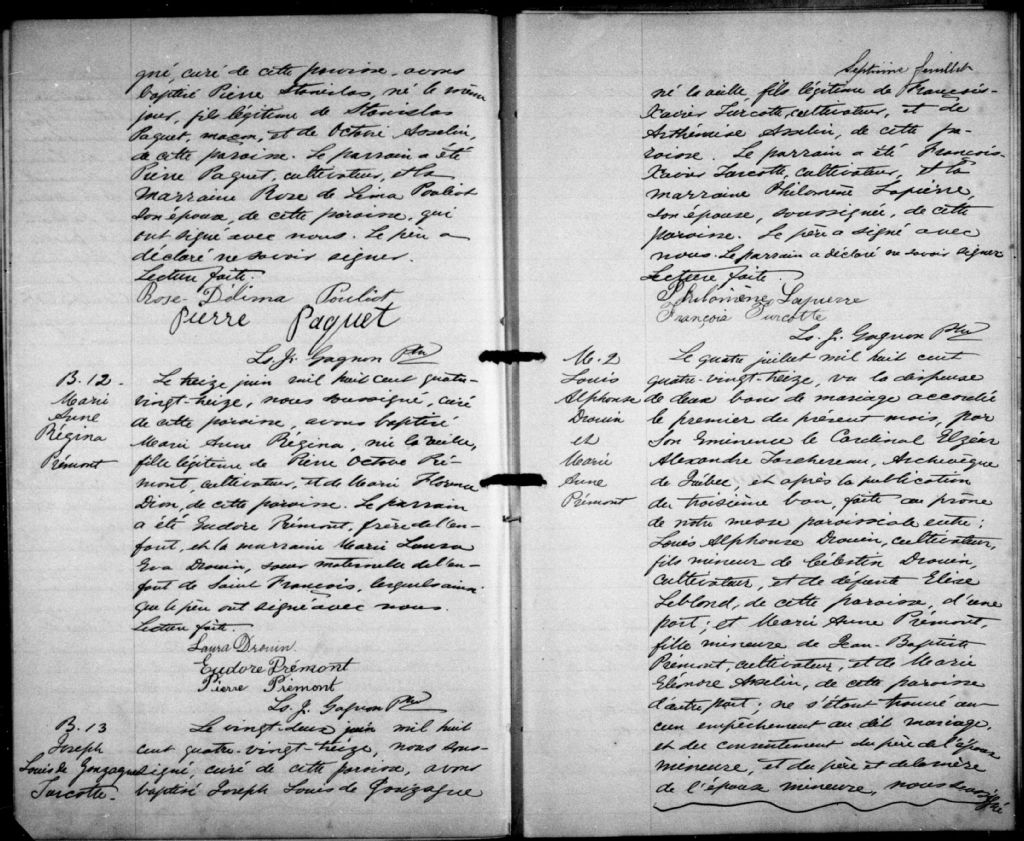 gné, curé de cette paroisse, avons
baptisé Pierre Stanislas, né le même
jour, fils légitime de Stanislas
Paquet, maçon, et de Octavé Asselin,
de cette paroisse. Le parrain a été
Pierre Paquet, cultivateur, et la
marraine Rose de Lima Pouliot
son épouse, de cette paroisse, qui
ont signé avec nous. Le père a
déclaré ne savoir signer.
Lecture faite.
Rose-Délima Pouliot
Pierre Paquet
Ls. J. Gagnon Ptre
B. 12
Marie
Anne
Régina
Prémont
Le treize juin mil huit cent quatre-
vingt-treize, nous soussigné, curé
de cette paroisse, avons baptisé
Marie Anne Régina, née la veille,
fille légitime de Pierre Octave Pré-
mont, cultivateur, et de Marie Florence
Dion, de cette paroisse. Le parrain
a été Eudore Prémont, frère de l'en-
fant, et la marraine Marie Laura
Eva Drouin, soeur maternelle de l'en-
fant de Saint François, lesquels ainsi
que le père ont signé avec nous.
Lecture faite.
Laura Drouin
Eudore Prémont
Pierre Prémont
Ls. J. Gagnon Ptre
B. 13
Joseph
Louis de Gonzague
Turcotte
Le vingt-deux juin mil huit
cent quatre-vingt-treize, nous sous-
signé, curé de cette paroisse, avons
baptisé Joseph Louis de Gonzague
Septième feuillet
né la veille, fils légitime de François-
Xavier Turcotte, cultivateur, et de
Arthémise Asselin, de cette pa-
roisse. Le parrain a été François-
Xavier Turcotte, cultivateur, et la
marraine Philomène Lapierre,
son épouse, soussignée, de cette
paroisse. Le père a signé avec
nous. Le parrain a déclaré ne savoir signer
Lecture faite.
Philomène Lapierre
François Turcotte
Ls. J. Gagnon Ptre
M. 2
Louis
Alphonse
Drouin
et
Marie
Anne
Prémont
Le quatre juillet mil huit cent
quatre-vingt-treize, vu la dispense
de deux bans de mariage accordée
le premier du présent mois, par
Son Eminence le Cardinal Elzéar
Alexandre Taschereau, Archevêque
de Québec, et après la publication
du troisième ban, faite au prône
de notre messe paroissiale entre;
Louis Alphonse Drouin, cultivateur,
fils mineur de Célestin Drouin,
cultivateur, et de défunte Elise
Leblond, de cette paroisse, d'une
part; et Marie Anne Prémont,
fille mineure de Jean-Baptiste
Prémont, cultivateur, et de Marie
Eléonore Asselin, de cette paroisse
d'autre part; ne s'étant trouvé au-
cun empêchement au dit mariage,
et du consentement du père de l'époux
mineure, et du père et de la mère
de l'épouse mineure, nous soussigné